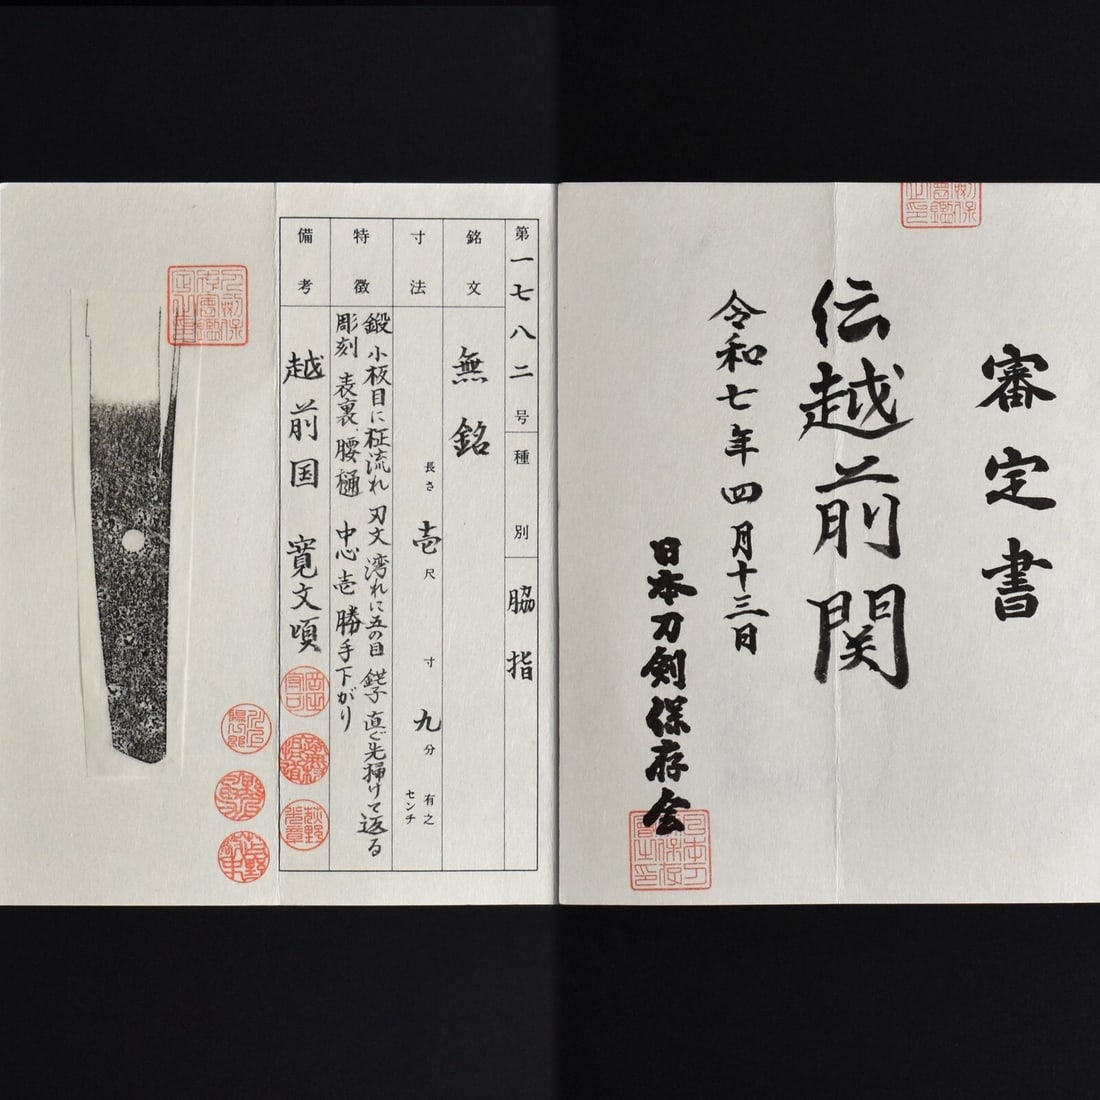 審定書
伝越前関
令和七年四月十三日
日本刀剣保存会
第一七八二号 種別 脇指
銘文 無銘
寸法 長さ 壱尺 寸 九分 有之 センチ
特徴 鍛 小板目に柾流れ 刃文 湾れに五の目 鋩子 直ぐ先掃けて返る
彫刻 表裏、腰樋 中心壱 勝手下がり
備考 越前国 寛文頃